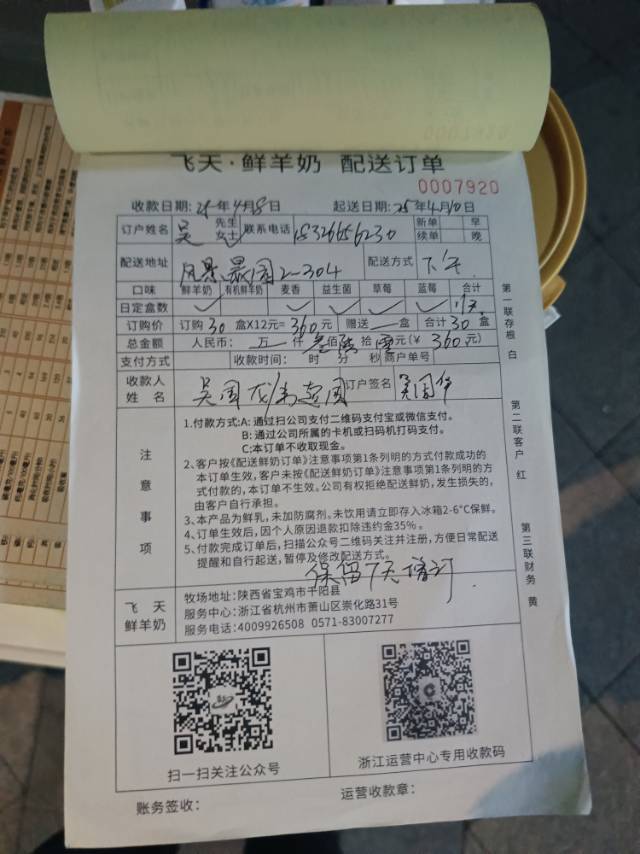 飞天·鲜羊奶 配送订单
0007920
收款日期: 25年4月8日 起送日期: 25年4月10日
订户姓名 吴 先生 女士 联系电话 15326656230 新单 续单 早 晚
配送地址 风景晨园2-304 配送方式 下午
口味 鲜羊奶 有机鲜羊奶 麦香 益生菌 草莓 蓝莓 合计
日定盒数 1/天
订购价 订购30盒X12元=360元 赠送—盒 合计30盒
总金额 人民币: 万 仟 叁佰陆拾零元(￥360元)
支付方式 收款时间: 时 分 秒 商户单号
收款人姓名 吴国 订户签名 吴国华
注意事项
1.付款方式:A: 通过扫公司支付二维码支付宝或微信支付。
B: 通过公司所属的卡机或扫码机打码支付。
C: 本订单不收取现金。
2、客户按《配送鲜奶订单》注意事项第1条列明的方式付款成功的
本订单生效, 客户未按《配送鲜奶订单》注意事项第1条列明的方
式付款的, 本订单不生效。公司有权拒绝配送鲜奶, 发生损失的,
由客户自行承担。
3、本产品为鲜乳, 未加防腐剂、未饮用请立即存入冰箱2-6℃保鲜。
4、订单生效后, 因个人原因退款扣除违约金35%。
5、付款完成订单后, 扫描公众号二维码关注并注册, 方便日常配送
提醒和自行起送, 暂停及修改配送方式。
保留7天增订
飞天鲜羊奶
牧场地址:陕西省宝鸡市千阳县
服务中心:浙江省杭州市萧山区崇化路31号
服务电话:4009926508 0571-83007277
扫一扫关注公众号
浙江运营中心专用收款码
账务签收:
运营收款章:
第一联存根 白
第二联客户 红
第三联财务 黄